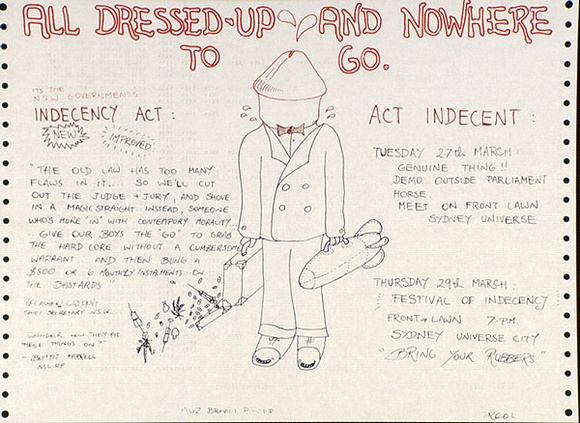 ALL DRESSED-UP AND NOWHERE
TO GO.
ITS THE
N.S.W. GOVERNMENTS
INDECENCY ACT :
NEW
IMPROVED
"THE OLD LAW HAS TOO MANY
FLAWS IN IT... SO WE'LL CUT
OUT THE JUDGE + JURY, AND SHOVE
IN A MAGICSTRAIGHT INSTEAD, SOMEONE
WHO'S MORE 'IN' WITH CONTEMPORY MORALITY...
GIVE OUR BOYS THE "GO" TO GRAB
THE HARD CORE WITHOUT A CUMBERSOME
WARRANT... AND THEN BUNG A
$500 OR 6 MONTHLY INSTALMENTS ON
THE BASTARDS"
CHIEF SECRETARY N.S.W.
WONDER HOW THEY PUT
THESE THINGS ON?"
ACT INDECENT :
TUESDAY 27th MARCH :
GENUINE THING!!
DEMO OUTSIDE PARLIAMENT
HORSE.
MEET ON FRONT LAWN
SYDNEY UNIVERSE
THURSDAY 29th MARCH :
FESTIVAL OF INDECENCY
FRONT LAWN 7.P.M.
SYDNEY UNIVERSE CITY
"BRING YOUR RUBBERS"